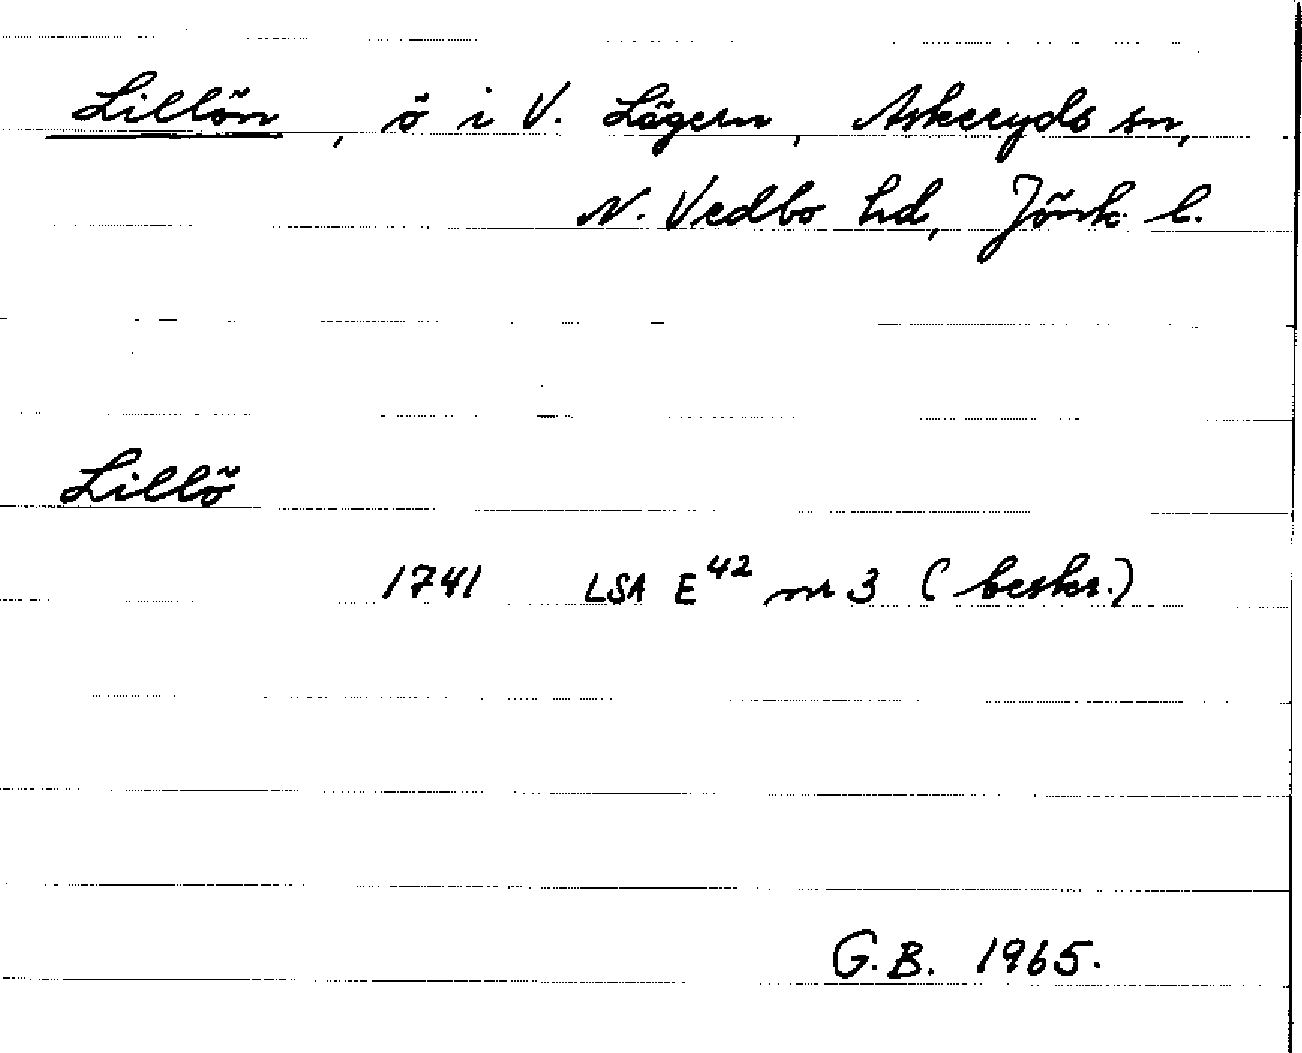 Lillön, ö i V. Lägern, Askeryds sn,
N. Vedbo hd, Jönk. l.
Lillö
1741 LSA E42 nr 3 (beskr.)
G.B. 1965.